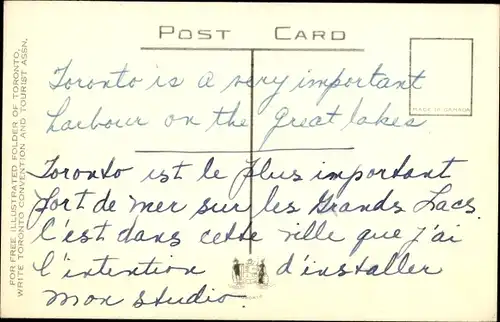 POST CARD
Toronto is a very important
harbour on the great lakes
MADE IN CANADA
Toronto est le plus important
port de mer sur les Grands Lacs.
C'est dans cette ville que j'ai
l'intention d'installer
mon studio.
FOR FREE ILLUSTRATED FOLDER OF TORONTO,
WRITE TORONTO CONVENTION AND TOURIST ASSN.